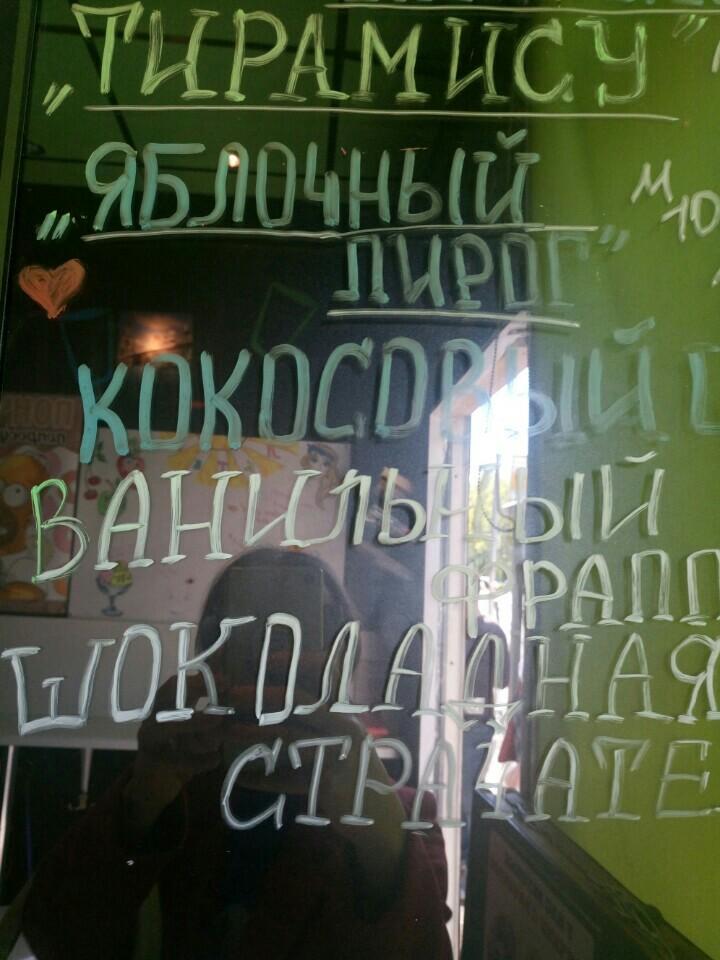 „ТИРАМИСУ”
„ЯБЛОЧНЫЙ
ПИРОГ”
КОКОСОВЫЙ
ВАНИЛЬНЫЙ
ФРАПП
ШОКОЛАДНАЯ
СТРАЧАТЕ